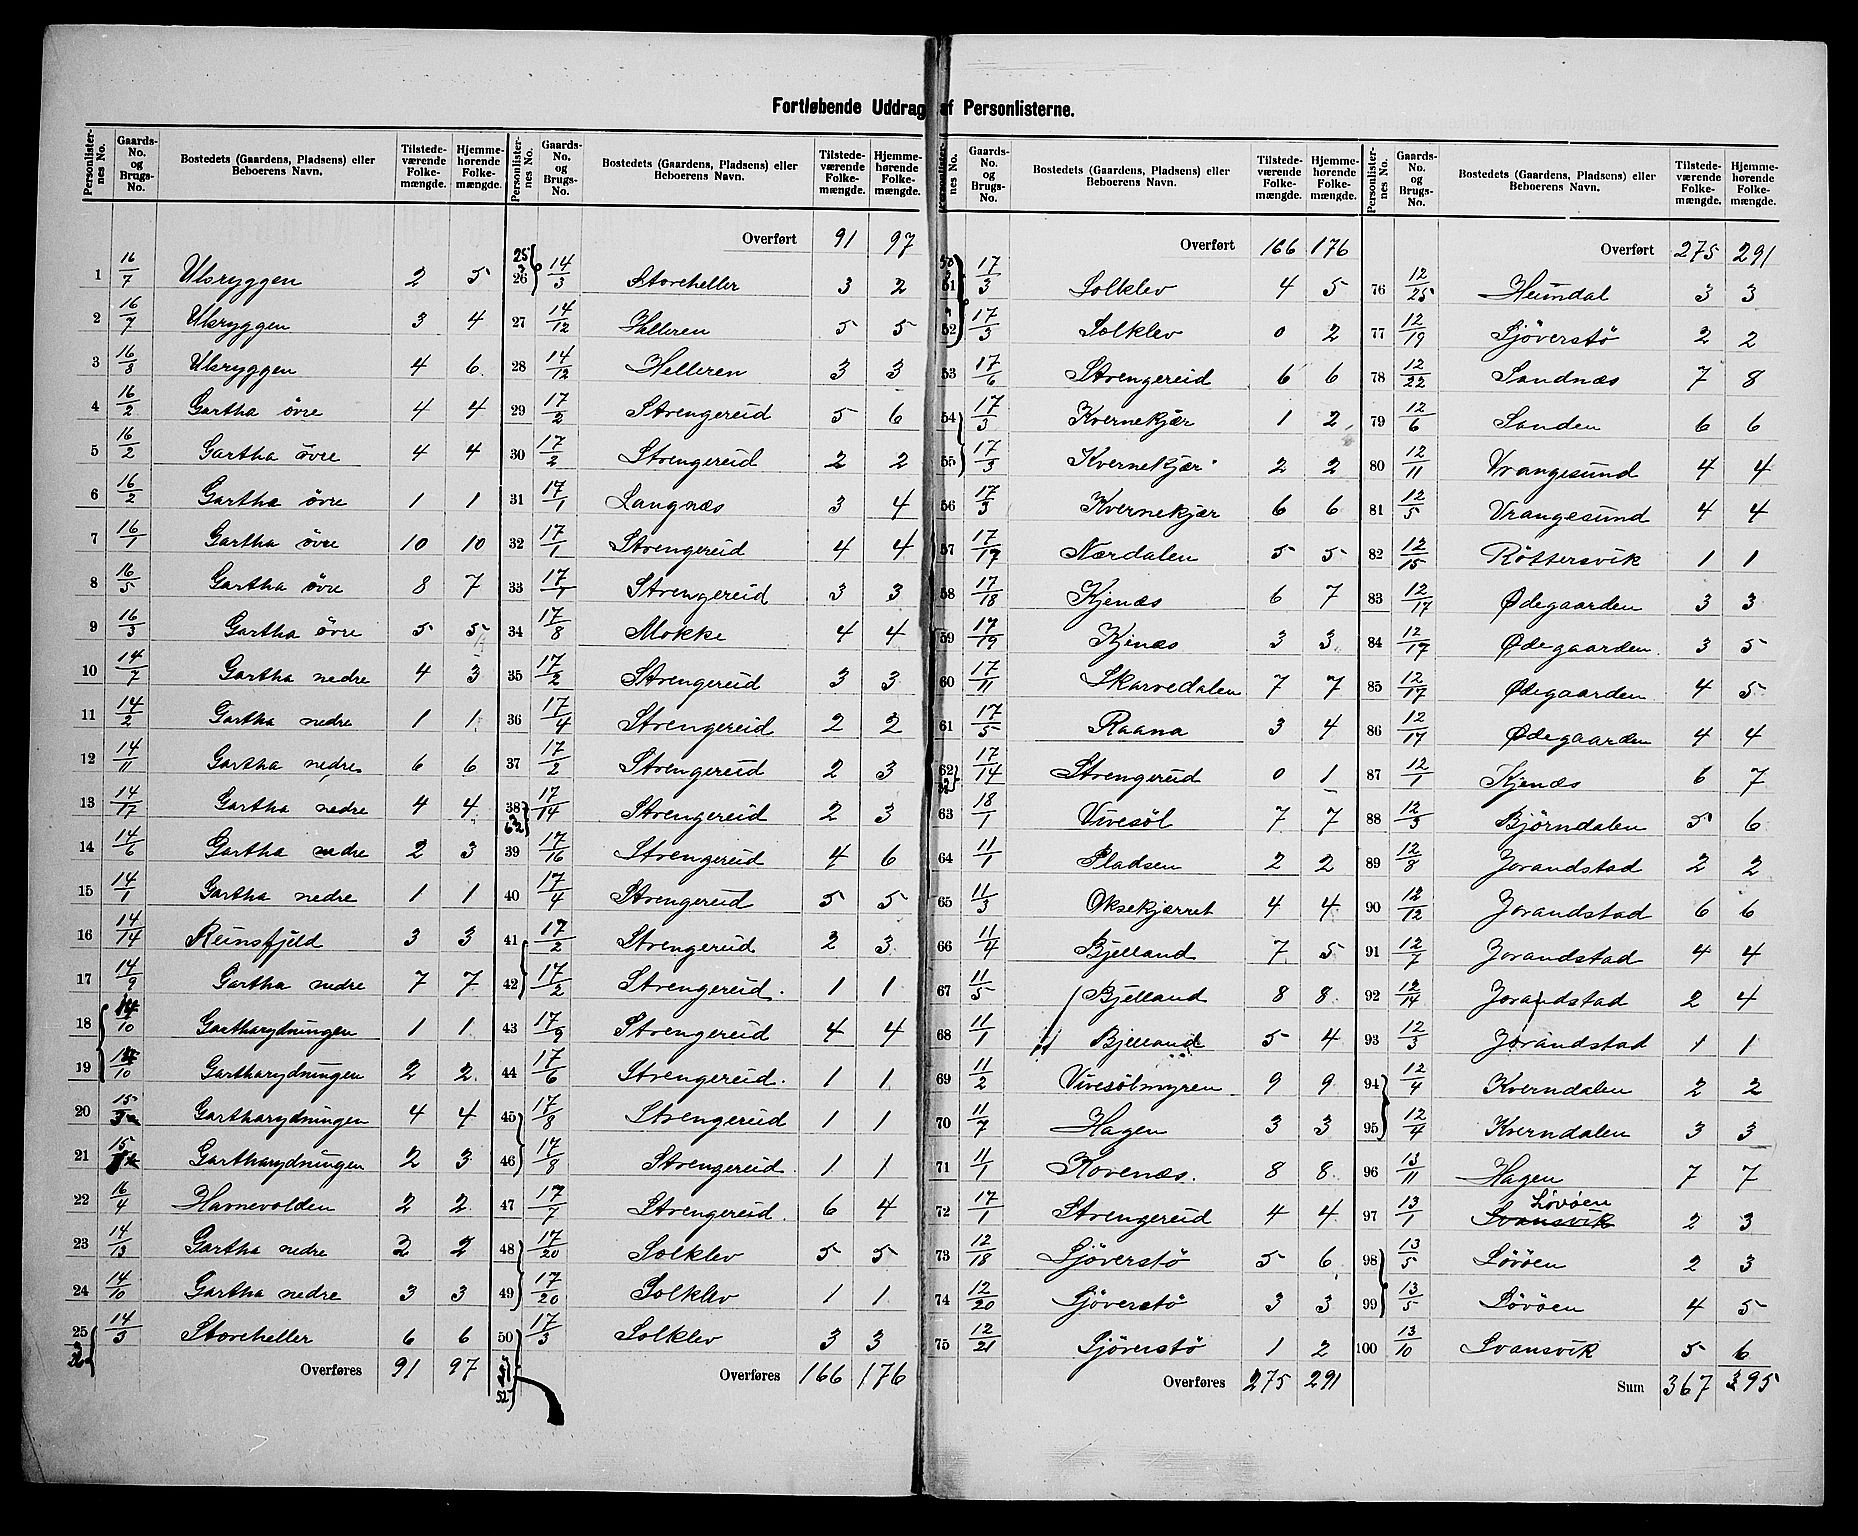 Fortløbende Uddrag af Personlisterne.
Personlister-nes No. | Gaards-No. og Brugs-No. | Bostedets (Gaardens, Pladsens) eller Beboerens Navn. | Tilstede-værende Folke-mængde. | Hjemme-hørende Folke-mængde.
1 16/7 Ulsryggen 2 5
2 16/7 Ulsryggen 3 4
3 16/8 Ulsryggen 4 6
4 16/2 Gartha övre 4 4
5 16/2 Gartha övre 4 4
6 16/2 Gartha övre 1 1
7 16/1 Gartha övre 10 10
8 16/5 Gartha övre 8 7
9 16/3 Gartha övre 5 5
10 14/7 Gartha nedre 4 3
11 14/2 Gartha nedre 1 1
12 14/11 Gartha nedre 6 6
13 14/17 Gartha nedre 4 4
14 14/6 Gartha nedre 2 3
15 14/1 Gartha nedre 1 1
16 14/14 Reinsfjeld 3 3
17 14/9 Gartha nedre 7 7
18 14/10 Gartharydningen 1 1
19 14/10 Gartharydningen 2 2
20 15 Gartharydningen 4 4
21 15 Gartharydningen 2 3
22 16/4 Havnevolden 2 2
23 14/13 Gartha nedre 2 2
24 14/10 Gartha nedre 3 3
25 14/3 Storeheller 6 6
Overføres 91 97
Personlister-nes No. | Gaards-No. og Brugs-No. | Bostedets (Gaardens, Pladsens) eller Beboerens Navn. | Tilstede-værende Folke-mængde. | Hjemme-hørende Folke-mængde.
Overført 91 97
26 14/3 Storeheller 3 2
27 14/12 Helleren 5 5
28 14/12 Helleren 3 3
29 17/2 Strengereid 5 6
30 17/2 Strengereid 2 2
31 17/1 Langnæs 3 4
32 17/1 Strengereid 4 4
33 17/1 Strengereid 3 3
34 17/8 Mokke 4 4
35 17/2 Strengereid 3 3
36 17/4 Strengereid 2 2
37 17/2 Strengereid 2 3
38 17/14 Strengereid 2 3
39 17/16 Strengereid 4 6
40 17/4 Strengereid 5 5
41 17/2 Strengereid 2 3
42 17/2 Strengereid. 1 1
43 17/9 Strengereid 4 4
44 17/6 Strengereid. 1 1
45 17/8 Strengereid 1 1
46 17/8 Strengereid 1 1
47 17/7 Strengereid. 6 4
48 17/20 Solklev 5 5
49 17/20 Solklev 1 1
50 17/3 Solklev 3 3
Overføres 166 176
Personlister-nes No. | Gaards-No. og Brugs-No. | Bostedets (Gaardens, Pladsens) eller Beboerens Navn. | Tilstede-værende Folke-mængde. | Hjemme-hørende Folke-mængde.
Overført 166 176
51 17/3 Solklev 4 5
52 17/3 Solklev 0 2
53 17/6 Strengereid 6 6
54 17/3 Kvernekjær 1 2
55 17/3 Kvernekjær 2 2
56 17/3 Kvernekjær 6 6
57 17/17 Nærdalen 5 5
58 17/18 Kjenæs 6 7
59 17/19 Kjenæs 3 3
60 17/11 Skarvedalen 7 7
61 17/5 Raana 3 4
62 17/14 Strengereid 0 1
63 18/1 Vivesöl 7 7
64 11/1 Pladsen 2 2
65 11/3 Oksekjærret 4 4
66 11/4 Bjelland 7 5
67 11/5 Bjelland 8 8
68 11/1 Bjelland 5 4
69 11/2 Vivesölmyren 9 9
70 11/7 Hagen 3 3
71 11/1 Kovenæs. 8 8
72 17/1 Strengereid 4 4
73 12/18 Sjöverstö 5 6
74 12/20 Sjöverstö 3 3
75 12/21 Sjöverstö 1 2
Overføres 275 291
Personlister-nes No. | Gaards-No. og Brugs-No. | Bostedets (Gaardens, Pladsens) eller Beboerens Navn. | Tilstede-værende Folke-mængde. | Hjemme-hørende Folke-mængde.
Overført 275 291
76 12/25 Heimdal 3 3
77 12/19 Sjöverstö 2 2
78 12/22 Sandnæs 7 8
79 12/6 Sanden 6 6
80 12/11 Vrangesund 4 4
81 12/5 Vrangesund 4 4
82 12/15 Röttersvik 1 1
83 12/17 Ødegaarden 3 3
84 12/17 Ødegaarden. 3 5
85 12/17 Ødegaarden 4 5
86 12/17 Ødegaarden 4 4
87 12/1 Kjenæs 6 7
88 12/3 Björndalen 5 6
89 12/8 Jorandstad 2 2
90 12/12 Jorandstad 6 6
91 12/7 Jorandstad 4 4
92 12/14 Jorandstad 2 4
93 12/3 Jorandstad 1 1
94 12/4 Kverndalen 2 2
95 12/4 Kverndalen 3 3
96 13/11 Hagen 7 7
97 13/1 Svansvik Lövöen 2 3
98 13/5 Lövöen 2 3
99 13/5 Lövöen 4 5
100 13/10 Svansvik 5 6
Sum 367 395